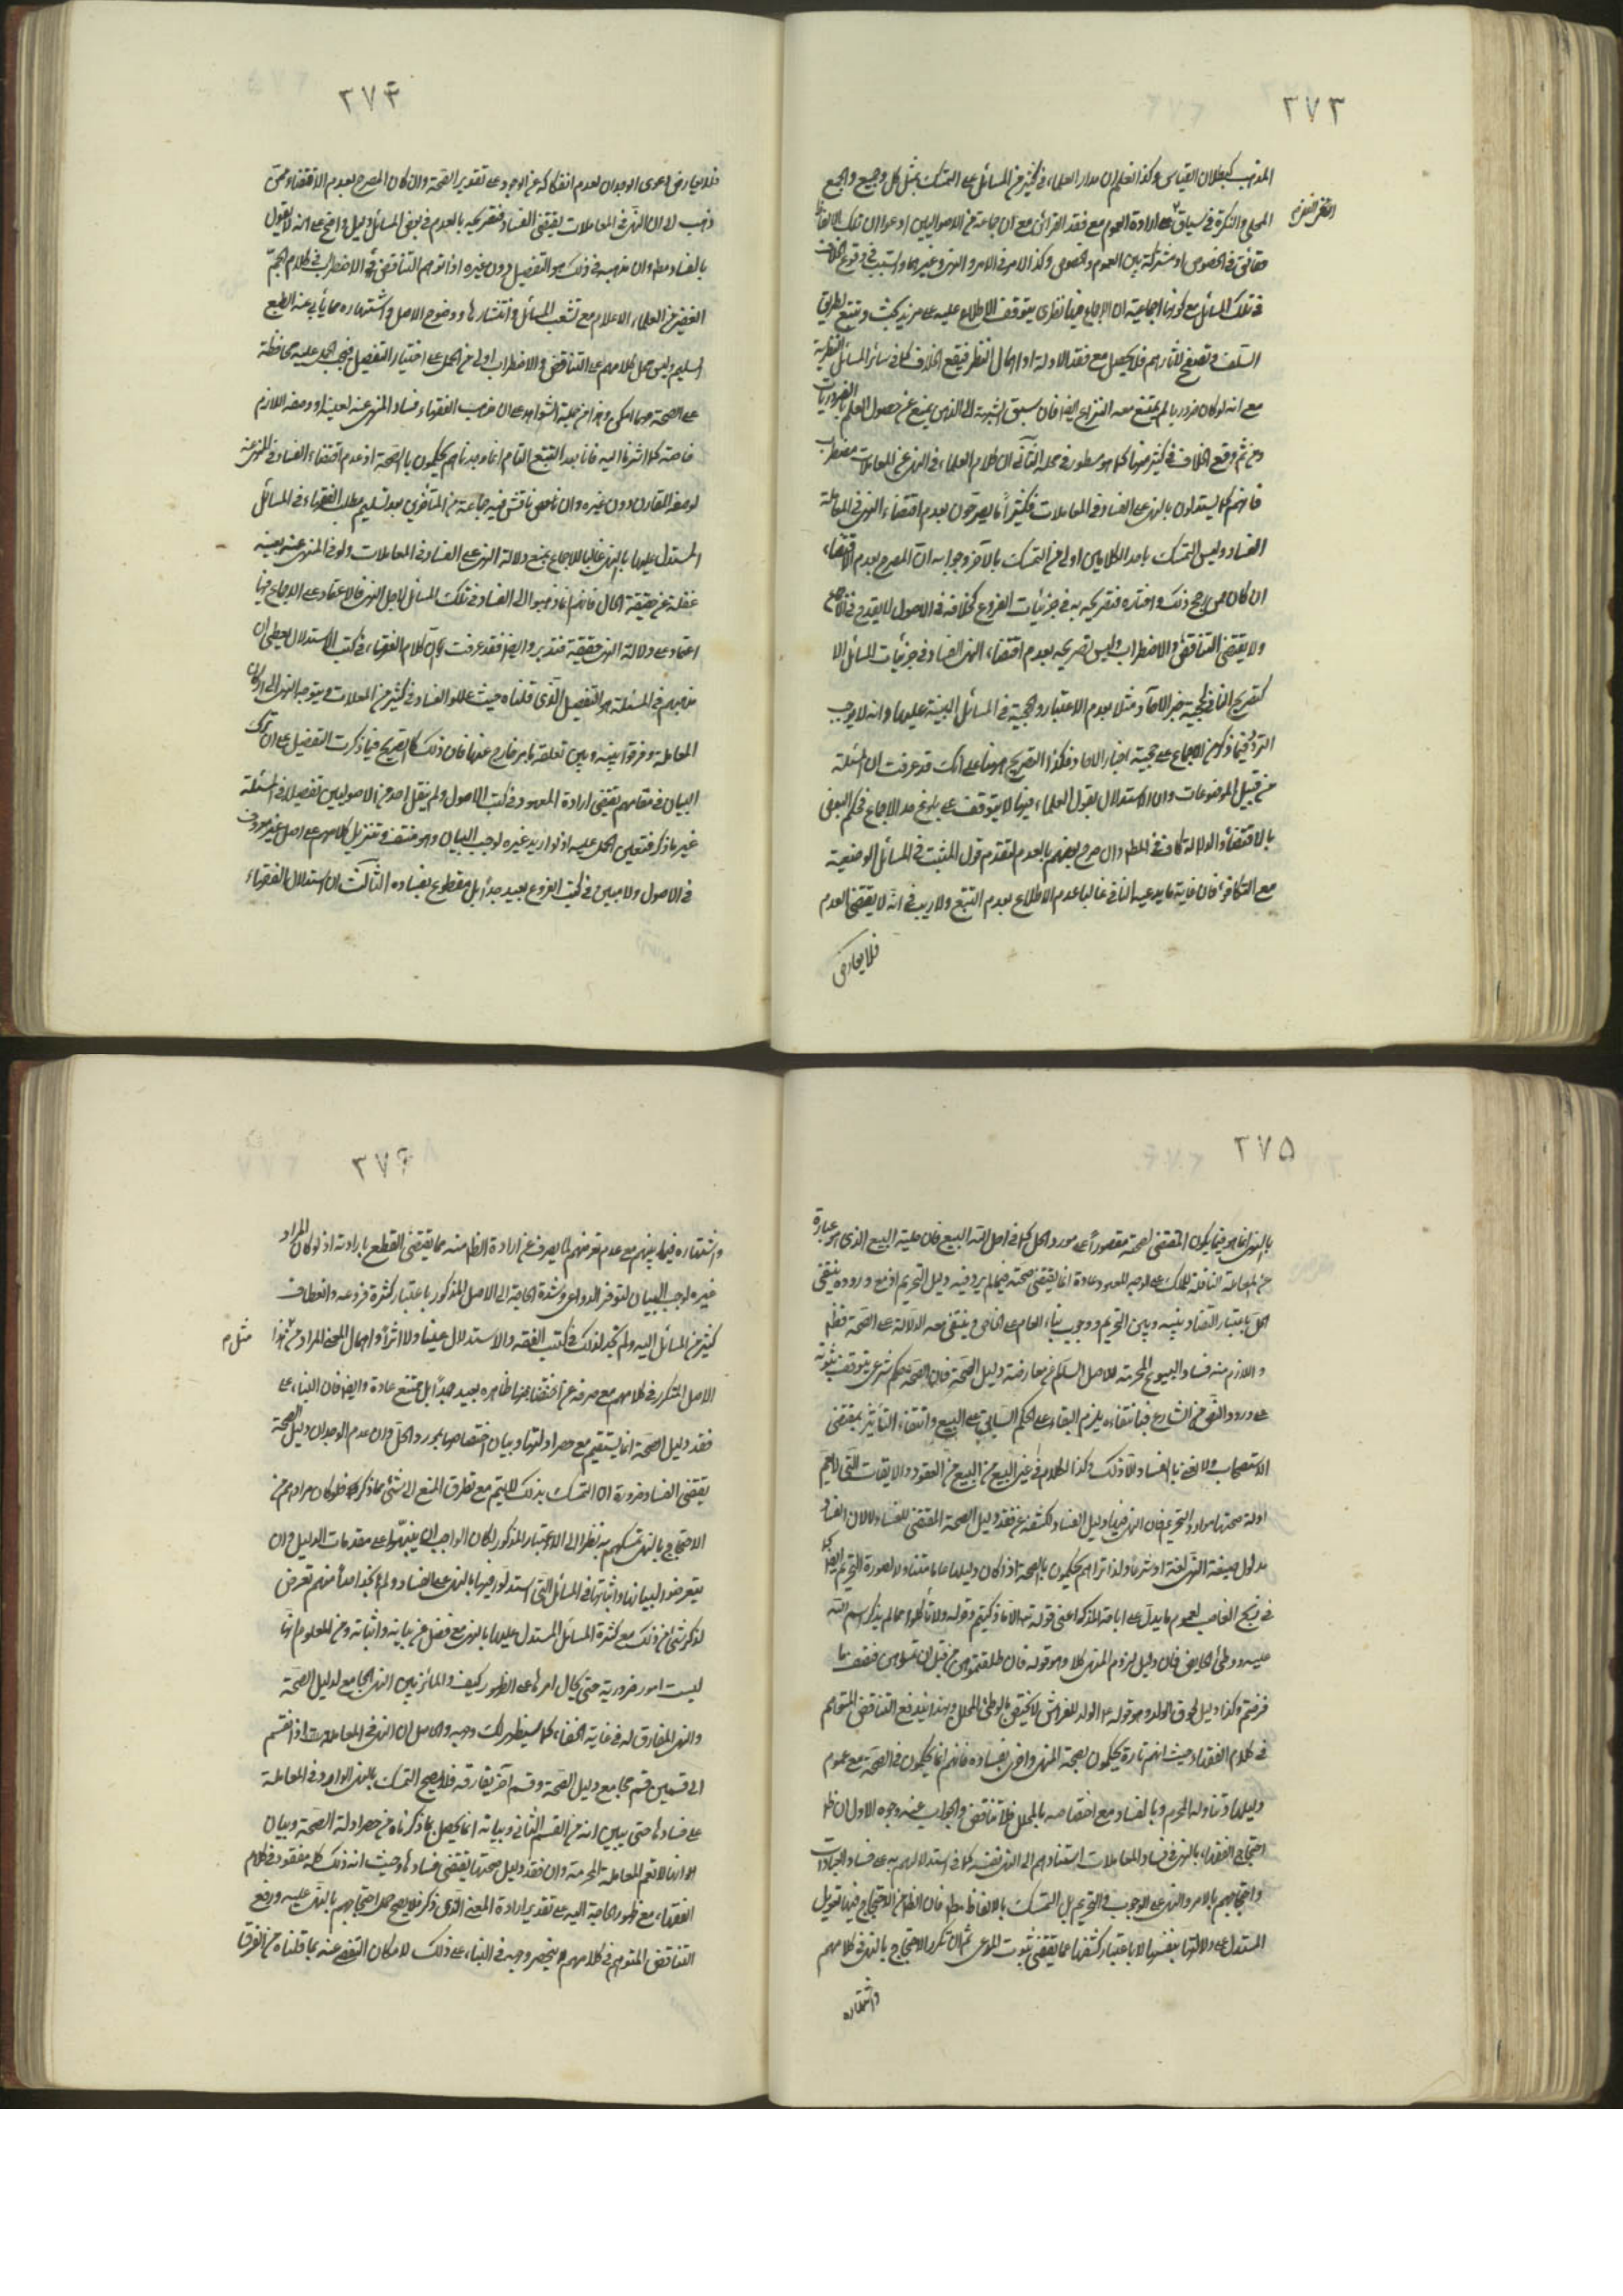 ٢٧٣
المذهب كبطلان القياس وكذا نعلم ان مدار العلماء في كثير من المسائل على التمسك بمثل كل وجميع والجمع
المحلى والنكرة في سياق على ارادة العموم مع فقد القرائن مع ان جماعة من الاصوليين ادعوا ان تلك الالفاظ
حقائق في الخصوص او مشتركة بين العموم والخصوص وكذا الامر في الامر والنهي وغيرهما والسبب في وقوع الخلاف
في تلك المسائل مع كونها اجماعية ان الاجماع فيها نظري يتوقف الاطلاع عليه على مزيد بحث وتتبع لطريق
السلف وتصفح لآثارهم فلا يحصل مع فقد الاولة او اهمال النظر فيقع الخلاف كما في سائر المسائل النظرية
مع انه لو كان ضروريا لم يمتنع معه النزاع ايضا فان سبق الشبهة الى الذهن يمنع من حصول العلم بالضروريات
ومن ثم وقع الخلاف في كثير منها كما هو مسطور في محله الثاني ان كلام العلماء في النهي عن المعاملات مضطرب
فانهم كما يستدلون بالنهي على الفساد في المعاملات فكثيرا ما يصرحون بعدم اقتضاء النهي في المعاملة
الفساد وليس التمسك باحد الكلامين اولى من التمسك بالآخر وجوابه ان المصرح بعدم الاقتضاء
ان كان ممن رجح ذلك واختاره فتصريحه به في جزئيات الفروع كخلافه في الاصول لا يقدح في الاجماع
ولا يقتضي التناقض والاضطراب وليس تصريحه بعدم اقتضاء النهي الفساد في جزئيات المسائل الا
كتصريح النافي لحجية خبر الآحاد مثلا بعدم الاعتبار والحجية في المسائل المبنية عليها وانه لا يوجب
التردد فيما ذكر من الاجماع على حجية اخبار الاحاد فكذا التصريح هيهنا على انك قد عرفت ان المسئلة
من قبيل الموضوعات وان الاستدلال بقول العلماء فيها لا يتوقف على بلوغ حد الاجماع فحكم البعض
بالاقتضاء والدلالة كاف في المط وان صرح بعضهم بالعدم لتقدم قول المثبت في المسائل الوضعية
مع التكافؤ فان غاية ما يدعيه النافي غالبا عدم الاطلاع بعدم التتبع ولا ريب في انه لا يقتضي العدم
فلا يعارض
٢٧٤
فلا يعارض دعوى الوجدان لعدم انفكاكه عن الوجود على تقدير الصحة وان كان المصرح بعدم الاقتضاء ممن
ذهب الى ان النهي في المعاملات يقتضي الفساد فتصريحه بالعدم في بعض المسائل دليل واضح على انه لا يقول
بالفساد مط وان مذهبه في ذلك هو التفصيل دون غيره اذ توهم التناقض والاضطراب في كلام الجم
الغفير من العلماء الاعلام مع تشعب المسائل وانتشارها ووضوح الاصل واشتهاره مما يأبى عنه الطبع
السليم وليس حمل كلامهم على التناقض والاضطراب اولى من الحمل على اختيار التفصيل فيجب الحمل عليه محافظة
على الصحة مهما امكن وهذا من جملة الشواهد على ان مذهب الفقهاء فساد المنهي عنه لعينه او وصفه اللازم
خاصة كما اشرنا اليه فانا بعد التتبع التام انما وجدناهم يحكمون بالصحة او عدم اقتضاء الفساد في المنهي عنه
لوصفه المقارن دون غيره وان ناقش فيه جماعة من المتأخرين بعد تسليم مطلب الفقهاء في المسائل
المستدل عليها بالنهي غالبا للاجماع بمنع دلالة النهي على الفساد في المعاملات ولو في المنهي عنه بعينه
غفلة عن حقيقة الحال فانهم انما ذهبوا الى الفساد في تلك المسائل لاجل النهي فالاعتماد على الاجماع فيها
اعتماد على دلالة النهي حقيقة فتدبر وايضا فقد عرفت ان كلام الفقهاء في كتب الاستدلال يعطي ان
مذهبهم في المسئلة هو التفصيل الذي قلناه حيث عللوا الفساد في كثير من المعاملات بتوجه النهي الى اركان
المعاملة وفرقوا بينه وبين تعلقه بامر خارج عنها فان ذلك كالتصريح فيما ذكرت التفصيل على ان ترك
البيان في مقامهم يقتضي ارادة المعهود في كتب الاصول ولم ينقل احد من الاصوليين تفصيلا في المسئلة
غير ما ذكر فتعين الحمل عليه اذ لو اريد غيره لوجب البيان وهو منتف وتنزيل كلامهم على اصل غير معروف
في الاصول ولا مبين في كتب الفروع بعيد جدا بل مقطوع بفساده الثالث ان استدلال الفقهاء
٢٧٥
بالنهي انما هو فيما يكون المقتضي لصحته مقصورا على مورد الحل كما في احل الله البيع فان حلية البيع الذي هو عبارة
عن المعاملة الناقلة للملك على الوجه المعهود عادة انما يقتضي صحته فيما لم يرد فيه دليل التحريم اذ مع وروده ينتفي
الحل باعتبار التضاد بينه وبين التحريم ووجوب بناء العام على الخاص وينتفي معه الدلالة على الصحة قطعا
واللازم منه فساد البيوع المحرمة للاصل السالم عن معارضة دليل الصحة فان الصحة حكم شرعي يتوقف ثبوته
على ورود النص من الشارع فبانتفائه يلزم البقاء على الحكم السابق على البيع وانتفاء التأثير بمقتضى
الاستصحاب ولا نعني بالفساد الا ذلك وكذا الكلام في غير البيع من العقود والايقاعات التي لا تعم
ادلة صحتها موارد التحريم فان النهي فيها دليل الفساد لكشفه عن فقد دليل الصحة المقتضي للفساد لا لان الفساد
مدلول صيغة النهي لغة او شرعا ولذا تراهم يحكمون بالصحة اذا كان دليلها عاما متناولا لصورة التحريم ايضا كما
في ذبح الغاصب لعموم ما يدل على اباحة المذكى اعني قوله تع الا ما ذكيتم وقوله ولا تأكلوا مما لم يذكر اسم الله
عليه ووطئ الحايض فان دليل لزوم المهر كلا وهو قوله فان طلقتموهن من قبل ان تمسوهن فنصف ما
فرضتم وكذا دليل لحوق الولد وهو قوله ع الولد للفراش لا يختص بالوطئ المحلل وبهذا يندفع التناقض المتوهم
في كلام الفقهاء حيث انهم تارة يحكمون بصحة المنهي واخرى بفساده فانهم انما يحكمون في الصحة مع عموم
دليلها وتناوله المحرم وبالفساد مع اختصاصه بالمحلل فلا تناقض والجواب عنه وجوه الاول ان ظ
احتجاج الفقهاء بالنهي في فساد المعاملات استنادهم الى النهي نفسه كما في استدلالهم به على فساد العبادات
واحتجاجهم بالامر والنهي على الوجوب والتحريم بل التمسك بالالفاظ مط فان الظ من الاحتجاج فيها تعويل
المستدل على دلالتها بنفسها لا باعتبار كشفها عما يقتضي ثبوت المدعى ثم ان تكرر الاحتجاج بالنهي في كلامهم
واشتهاره
٢٧٦
واشتهاره فيما بينهم مع عدم تعرضهم لما يصرف عن ارادة الظ منه مما يقتضي القطع بارادته اذ لو كان المراد
غيره لوجب البيان لتوفر الدواعي وشدة الحاجة الى الاصل المذكور باعتبار كثرة فروعه وانعطاف
كثير من المسائل اليه ولم نجد لذلك في كتب الفقه والاستدلال عينا ولا اثرا واهمال المراد من هذا
مثل م
الاصل المتكرر في كلامهم مع صرفه عن ظاهره بعيد جدا بل ممتنع عادة وايضا فان البناء على
فقد دليل الصحة انما يستقيم مع حصر ادلتها وبيان اختصاصها بمورد الحل وان عدم الوجدان دليل الصحة
يقتضي الفساد ضرورة ان التمسك بذلك لا يتم مع تطرق المنع الى شئ مما ذكر فلو كان مرادهم من
الاحتجاج بالنهي تمسكهم به نظرا الى الاعتبار المذكور لكان الواجب ان ينبهوا على مقدمات الدليل وان
يتعرضوا لبيانها واثباتها في المسائل التي استدلوا فيها بالنهي على الفساد ولم نجد احدا منهم تعرض
لذكر شئ من ذلك مع كثرة المسائل المستدل عليها بالنهي فضلا عن بيانه واثباته ومن المعلوم انها
ليست امور ضرورية حتى يحال امرها على الظهور كيف والمائز بين النهي المجامع لدليل الصحة
والنهي المفارق له في غاية الخفاء كما سيظهر لك وجهه والحاصل ان النهي في المعاملات اذا انقسم
الى قسمين قسم يجامع دليل الصحة وقسم آخر يفارقه فلا يصح التمسك بالنهي الوارد في المعاملة
على فسادها حتى يبين انه من القسم الثاني وبيانه انما يحصل بما ذكرناه من حصر ادلة الصحة وبيان
انها لا تعم المعاملة المحرمة وان فقد دليل صحتها يقتضي فسادها وحيث ان ذلك كله مفقود في كلام
الفقهاء مع ظهور الحاجة اليه على تقدير ارادة المعنى الذي ذكر فلا يصح حمل احتجاجهم بالنهي عليه ورفع
التناقض المتوهم في كلامهم لا ينحصر وجهه في البناء على ذلك لامكان التفصي عنه بما قلناه من الفرق